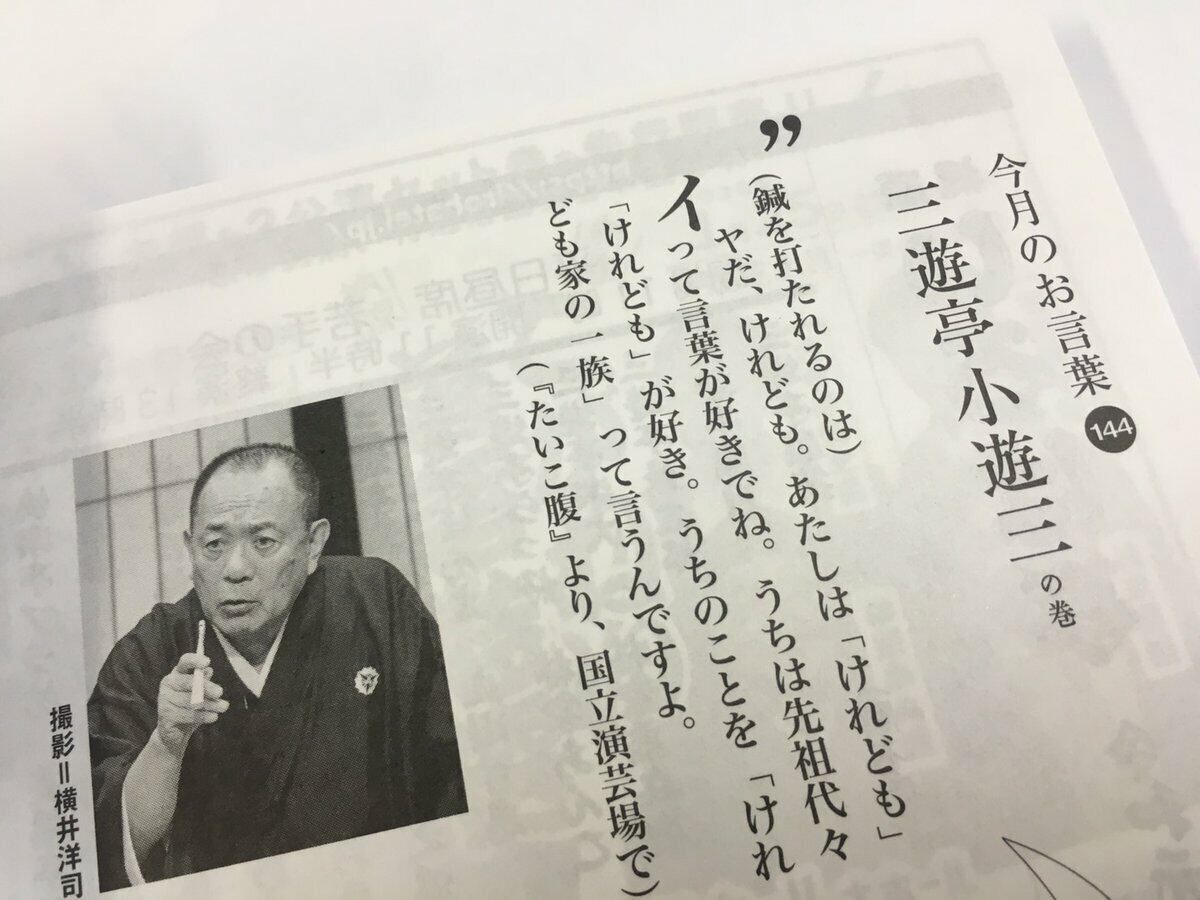 今月のお言葉 144
三遊亭小遊三の巻
”
(鍼を打たれるのは)
イヤだ、けれども。あたしは「けれども」
って言葉が好きでね。うちは先祖代々
「けれども」が好き。うちのことを「けれ
ども家の一族」って言うんですよ。
(『たいこ腹』より、国立演芸場で)
撮影=横井洋司